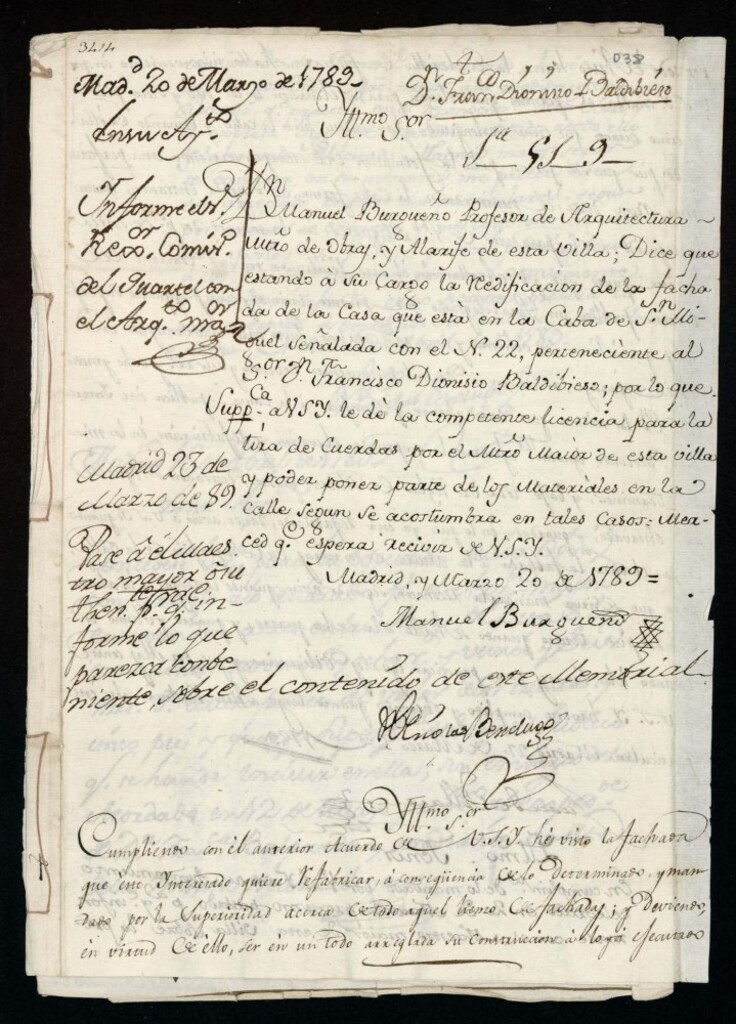 344
038
Mad.d 20 de Marzo de 1789
D.n Fran.co Dionisio Baldibieso
En su Ay.to
Yll.mo S.or
Informe el S.r
Rexor. Comis.o
del Quartel con
el Arq.to mayor
D.n Manuel Burgueño Profesor de Arquitectura
Mtro de Obras, y Alarife de esta Villa; Dice que
estando à su Cargo la Redificacion de la facha
da de la Casa que està en la Caba de S.n Mi-
guel señalada con el N. 22, perteneciente al
S.or D.n Francisco Dionisio Baldibieso; por lo que
Supp.ca a V S Y. le dè la competente licencia para la
tira de Cuerdas por el Mtro Maior de esta villa
y poder poner parte de los Materiales en la
calle segun se acostumbra en tales Casos: Mer-
ced q.e espera recivir de V.S.Y.
Madrid, y Marzo 20 de 1789=
Manuel Burgueño
Madrid 23 de
Marzo de 89.
Pase à el Maes
tro mayor ò su
then.te p.a q. in-
forme lo que
parezca combe
niente, sobre el contenido de este Memorial
Yll.mo S.or
Cumpliendo con el anterior Acuerdo de V.S.Y. he visto la fachada
que este Interesado quiere Refabricar, à conseqüencia de lo Determinado, y man
dado por la Superioridad acerca de todo aquel lienzo de fachadas; y deviendo,
en virtud de ello, ser en un todo arreglada su Construccion à lo ya efecutado